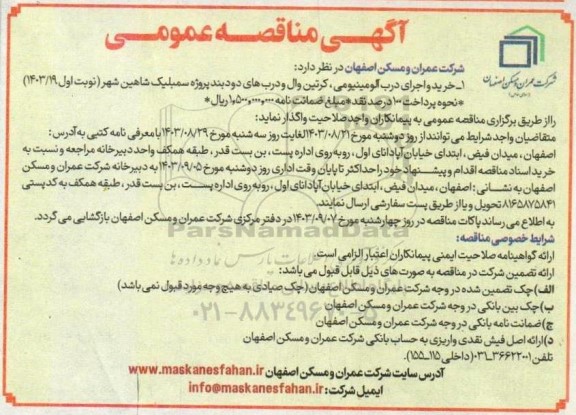 آگهی مناقصه عمومی
شرکت عمران و مسکن اصفهان
شرکت عمران و مسکن اصفهان در نظر دارد:
۱ـ خرید و اجرای درب آلومینیومی ، کرتین وال و درب های دودبند پروژه سمبلیک شاهین شهر (نوبت اول ۱۴۰۳/۱۹)
*نحوه پرداخت ۱۰۰ درصد نقد *مبلغ ضمانت نامه ۱،۵۰۰،۰۰۰،۰۰۰ ریال*
را از طریق برگزاری مناقصه عمومی به پیمانکاران واجد صلاحیت واگذار نماید:
متقاضیان واجد شرایط می توانند از روز دوشنبه مورخ ۱۴۰۳/۰۸/۲۱ لغایت روز سه شنبه مورخ ۱۴۰۳/۰۸/۲۹ با معرفی نامه کتبی به آدرس:
اصفهان ، میدان فیض ، ابتدای خیابان آپادانای اول ، روبه روی اداره پست ، بن بست قدر ، طبقه همکف واحد دبیرخانه مراجعه و نسبت به
خرید اسناد مناقصه اقدام و پیشنهاد خود را حداکثر تا پایان وقت اداری روز دوشنبه مورخ ۱۴۰۳/۰۹/۰۵ به دبیرخانه شرکت عمران و مسکن
اصفهان به نشانی : اصفهان ، میدان فیض ، ابتدای خیابان آپادانای اول ، روبه روی اداره پست ، بن بست قدر ، طبقه همکف به کدپستی
۸۱۶۵۸۷۵۸۴۱ تحویل و یا از طریق پست سفارشی ارسال نمایند.
به اطلاع می رساند پاکات مناقصه در روز چهارشنبه مورخ ۱۴۰۳/۰۹/۰۷ در دفتر مرکزی شرکت عمران و مسکن اصفهان بازگشایی می گردد.
ParsNamadData
شرایط خصوصی مناقصه:
ارائه گواهینامه صلاحیت ایمنی پیمانکاران اعتبار الزامی است.
ارائه تضمین شرکت در مناقصه به صورت های ذیل قابل قبول می باشد:
الف) چک تضمین شده در وجه شرکت عمران و مسکن اصفهان (چک صیادی به هیچ وجه مورد قبول نمی باشد)
ب) چک بین بانکی در وجه شرکت عمران و مسکن اصفهان
ج) ضمانت نامه بانکی در وجه شرکت عمران و مسکن اصفهان
د) ارائه اصل فیش نقدی واریزی به حساب بانکی شرکت عمران و مسکن اصفهان
تلفن ۳۶۶۲۲۰۰۱-۰۳۱ (داخلی ۱۱۵ ـ ۱۵۵).
آدرس سایت شرکت عمران و مسکن اصفهان www.maskanesfahan.ir
ایمیل شرکت: info@maskanesfahan.ir